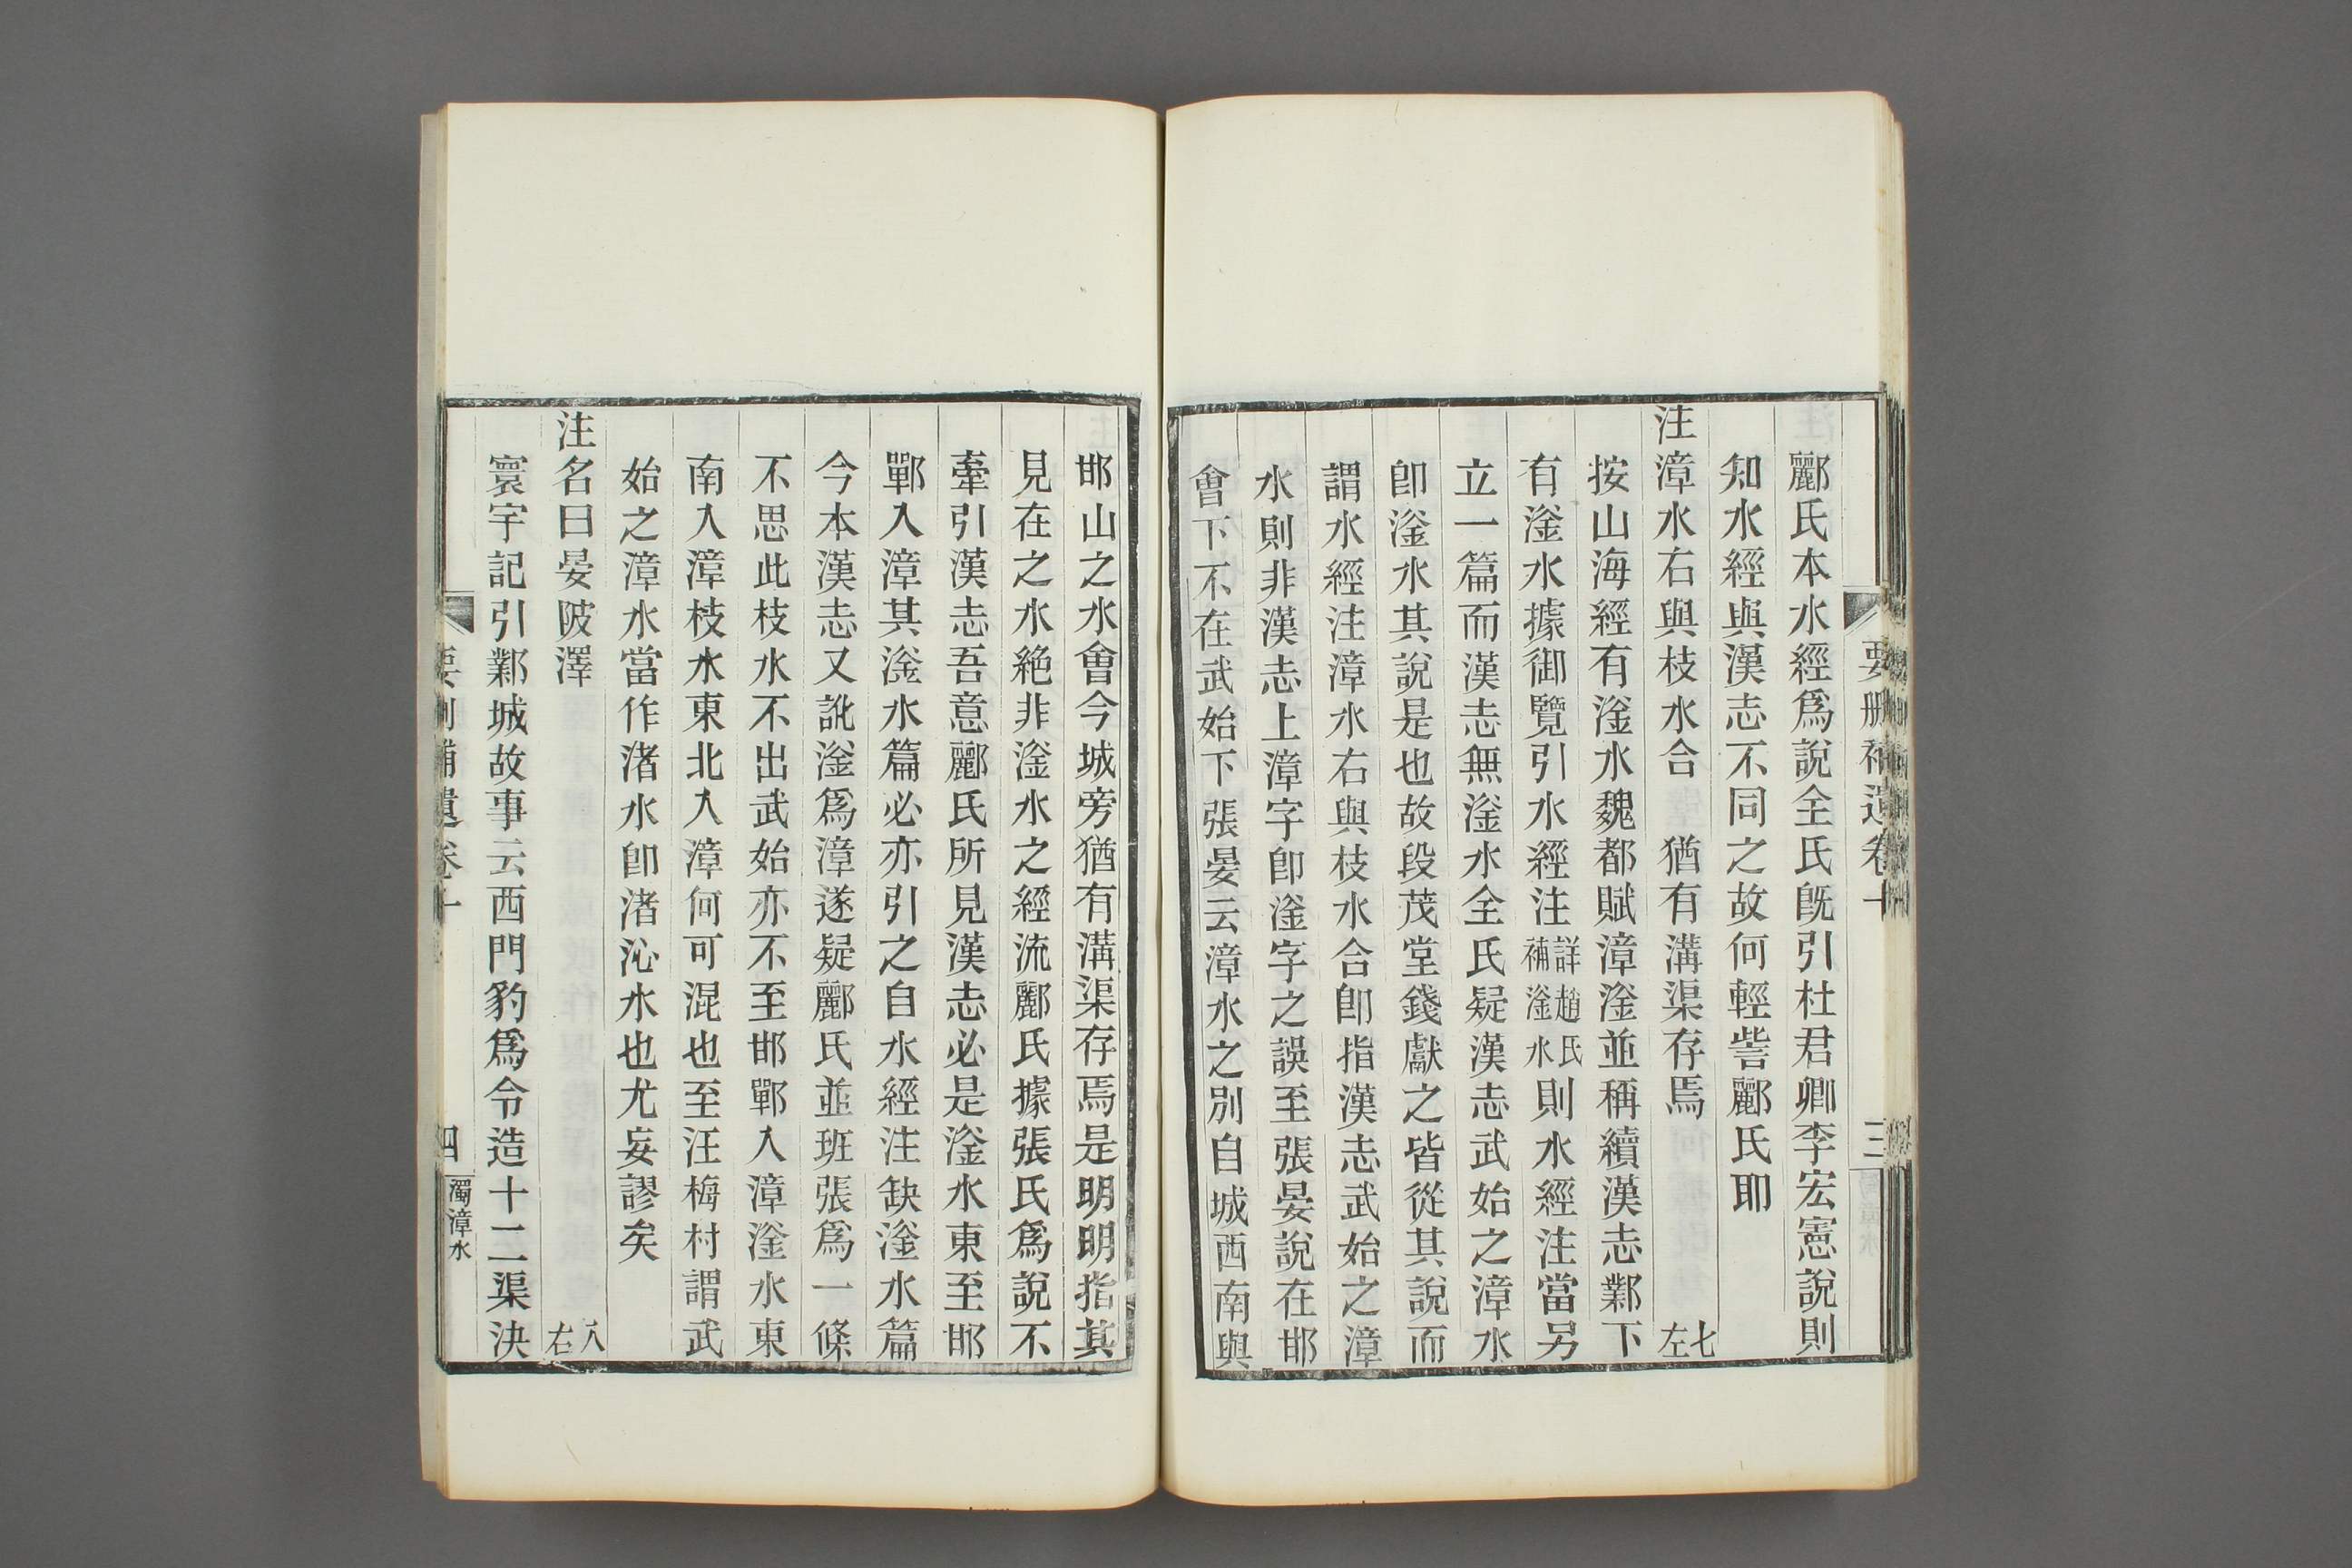 要刪補遺卷十
三
酈氏本水經爲說全氏旣引杜君卿李宏憲說則
知水經與漢志不同之故何輕訾酈氏耶
注漳水右與枝水合　猶有溝渠存焉　七左
按山海經有滏水魏都賦漳滏並稱續漢志鄴下
有滏水據御覽引水經注詳趙氏補滏水則水經注當另
立一篇而漢志無滏水全氏疑漢志武始之漳水
卽滏水其說是也故段茂堂錢獻之皆從其說而
謂水經注漳水右與枝水合卽指漢志武始之漳
水則非漢志上漳字卽滏字之誤至張晏說在邯
會下不在武始下張晏云漳水之別自城西南與
邯山之水會今城旁猶有溝渠存焉是明明指其
見在之水絶非滏水之經流酈氏據張氏爲說不
牽引漢志吾意酈氏所見漢志必是滏水東至邯
鄲入漳其滏水篇必亦引之自水經注缺滏水篇
今本漢志又訛滏爲漳遂疑酈氏並班張爲一條
不思此枝水不出武始亦不至邯鄲入漳滏水東
南入漳枝水東北入漳何可混也至汪梅村謂武
始之漳水當作渚水卽渚沁水也尤妄謬矣
注名曰晏陂澤　八右
寰宇記引鄴城故事云西門豹爲令造十二渠決
要刪補遺卷十
四
濁漳水